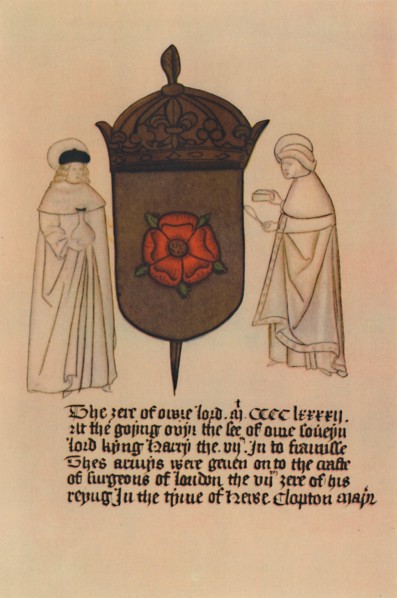 The zere of owre lord. M CCCC lxxxxii.
At the goiing ovyr the see of owre soveryn
lord kyng Harry the. vii. In to fraunse
Thes armys were geven on to the crafte
of surgeons of london the vii zere of his
reyng In the tyme of Hewe Clopton mayr